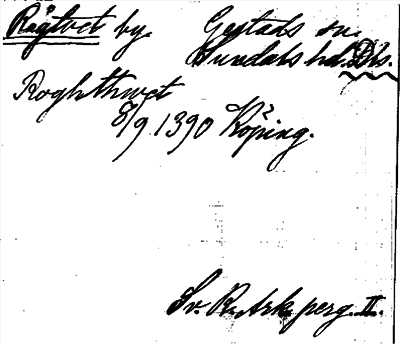 Rågtvet by. Gestads sn.
Sundals hd. Dls.
Roghthwet
8/9 1390 Köping.
Sv. R. Ark. perg. II.